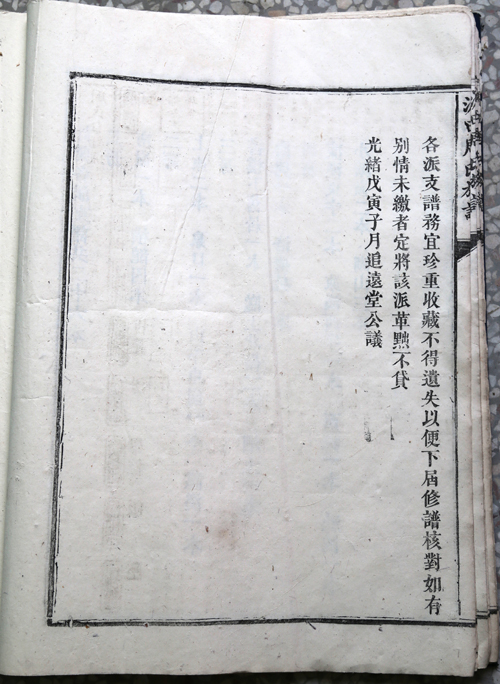 各派支譜務宜珍重收藏不得遺失以便下屆修譜核對如有
別情未繳者定將該派革黜不貸
光緒戊寅子月追遠堂公議